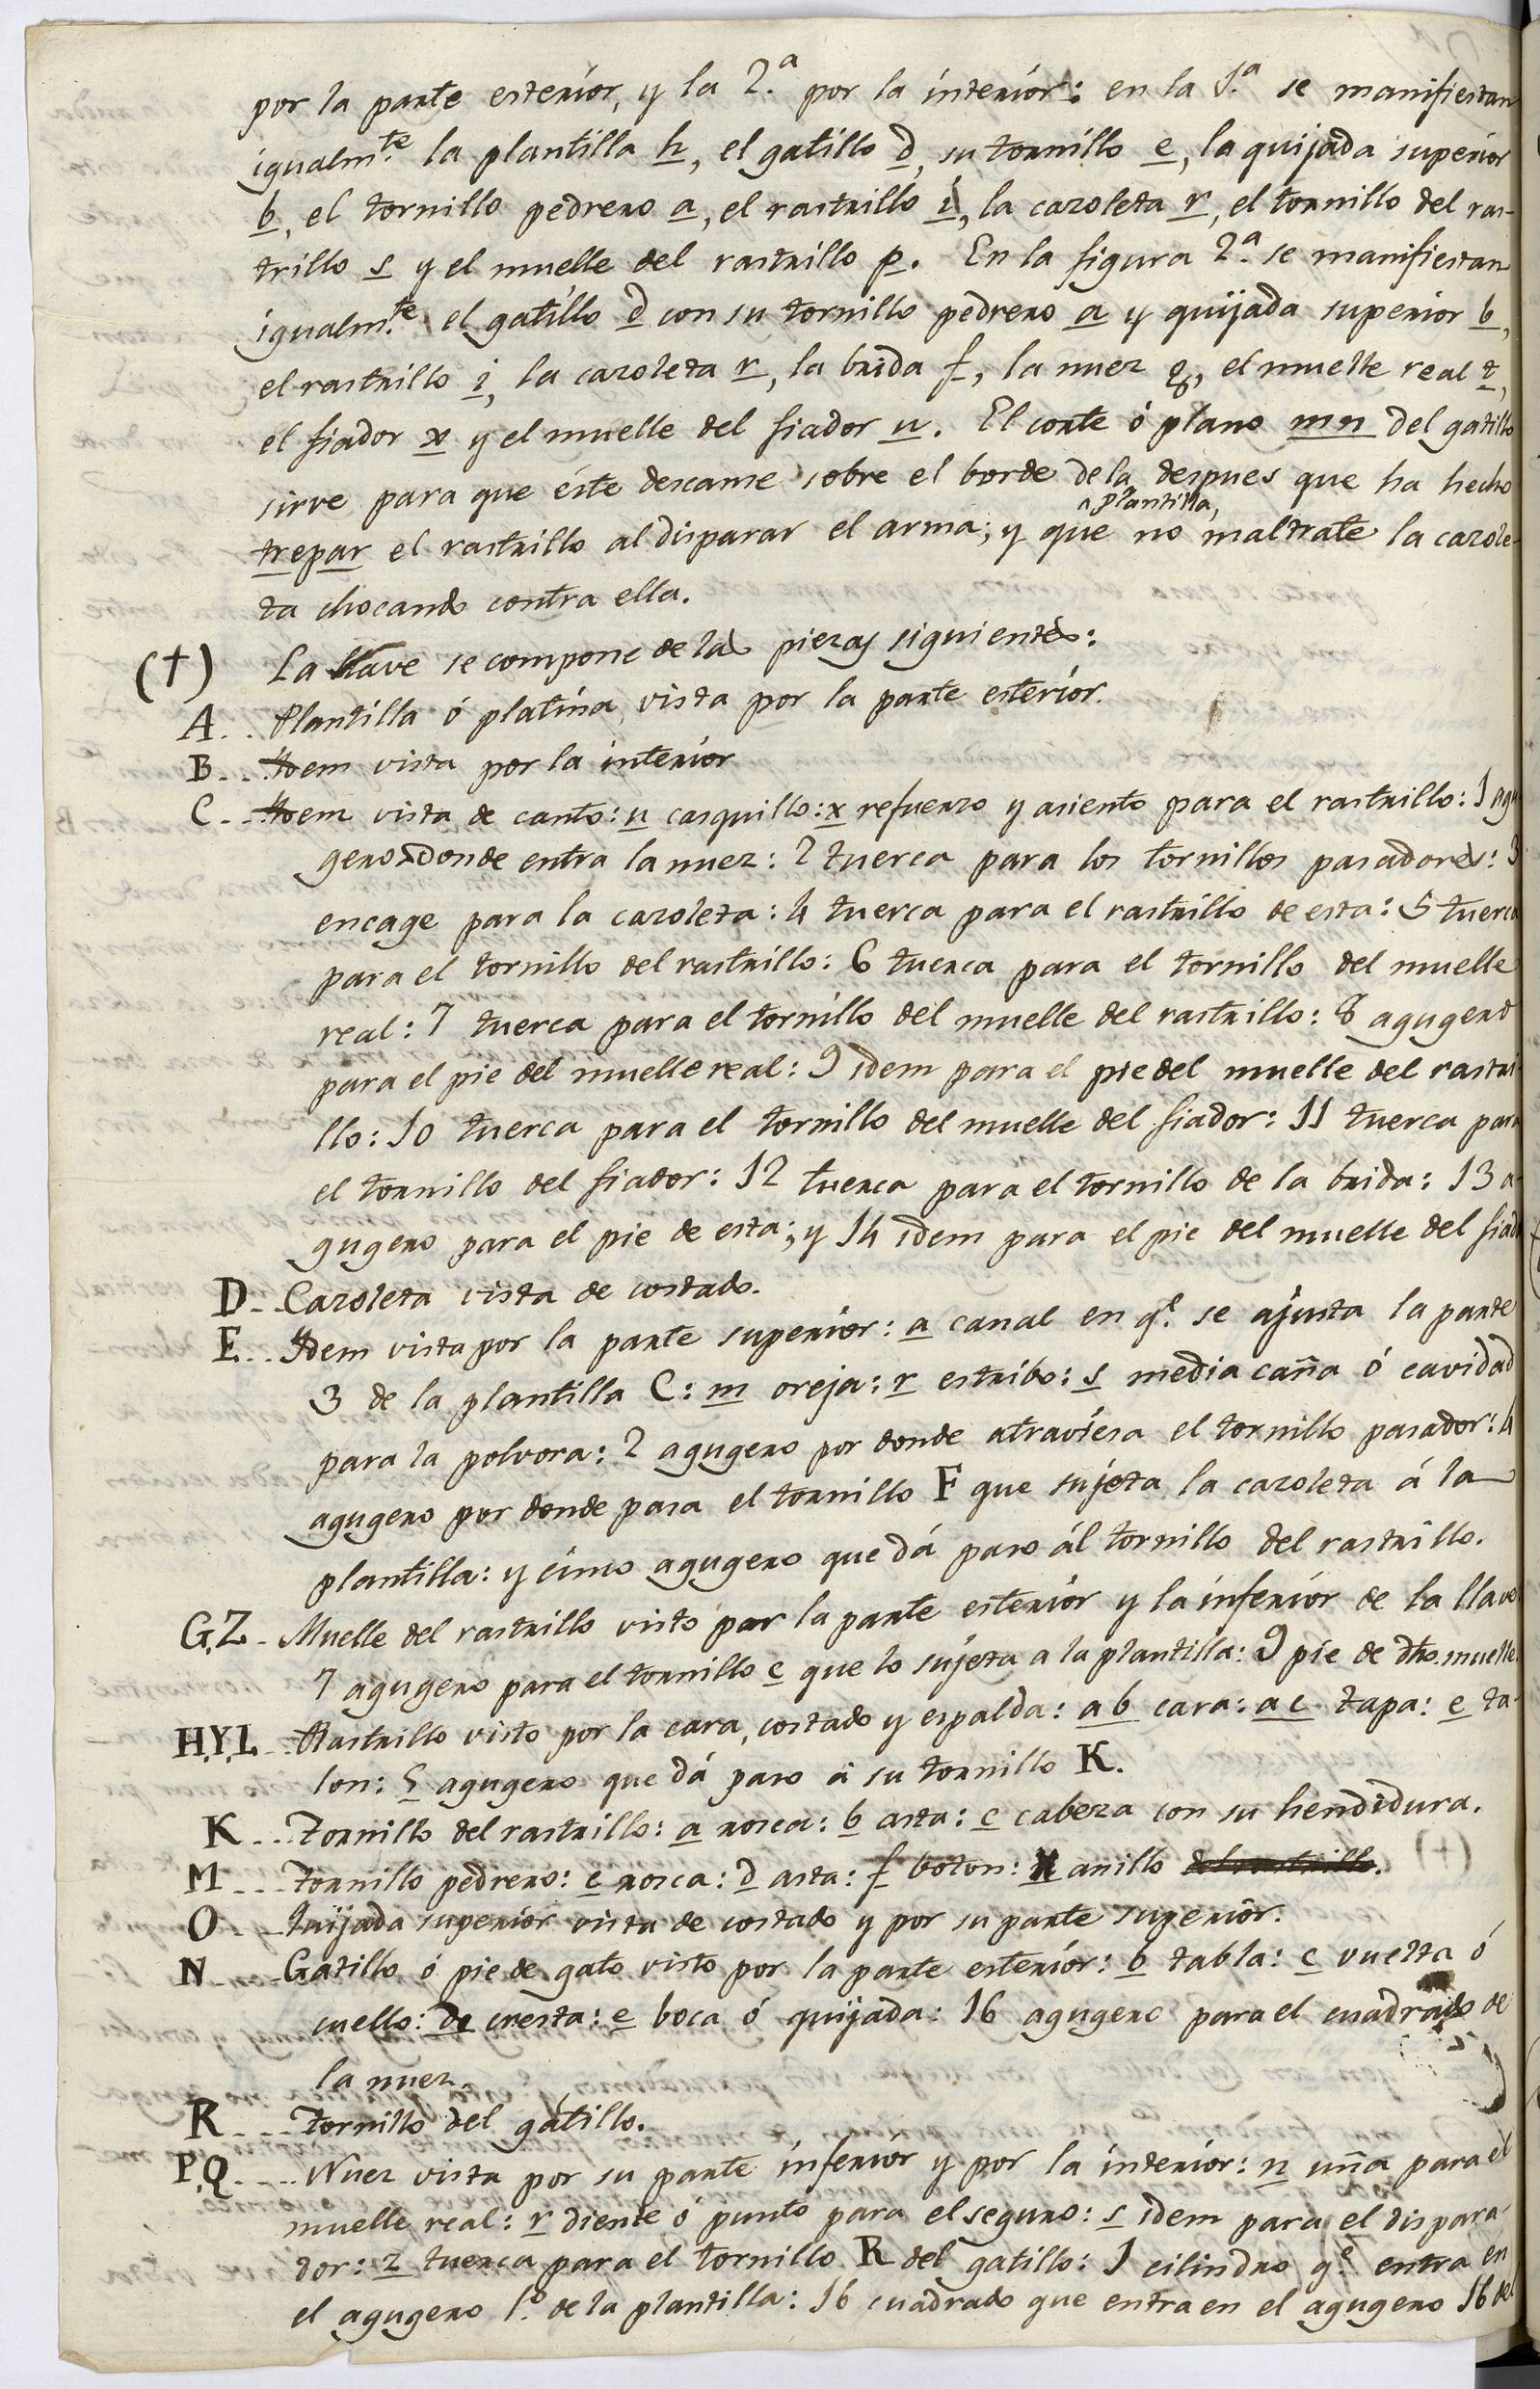 por la parte esterior, y la 2.ª por la interior: en la 1.ª se manifiestan
igualm.te la plantilla h, el gatillo d, su tornillo e, la quijada superior
b, el tornillo pedrero a, el rastrillo i, la cazoleta r, el tornillo del ras-
trillo s y el muelle del rastrillo p. En la figura 2.ª se manifiestan
igualm.te el gatillo d con su tornillo pedrero a y quijada superior b,
el rastrillo i, la cazoleta r, la brida f, la nuez q, el muelle real t,
el fiador x y el muelle del fiador u. El corte ó plano mn del gatillo
sirve para que éste descanse sobre el borde de la plantilla, despues que ha hecho
trepar el rastrillo al disparar el arma; y que no maltrate la cazole-
ta chocando contra ella.
(†) La llave se compone de las piezas siguientes:
A. . Plantilla ó platina, vista por la parte esterior.
B. . Idem vista por la interior
C. . Idem vista de canto: u casquillo: x refuerzo y asiento para el rastrillo: 1 agu
gero donde entra la nuez: 2 tuerca para los tornillos pasadores: 3
encage para la cazoleta: 4 tuerca para el rastrillo de esta: 5 tuerca
para el tornillo del rastrillo: 6 tuerca para el tornillo del muelle
real: 7 tuerca para el tornillo del muelle del rastrillo: 8 agugero
para el pie del muelle real: 9 idem para el pie del muelle del rastri-
llo: 10 tuerca para el tornillo del muelle del fiador: 11 tuerca para
el tornillo del fiador: 12 tuerca para el tornillo de la brida: 13 a-
gugero para el pie de esta; y 14 idem para el pie del muelle del fiad
D. . Cazoleta vista de costado.
E. . Idem vista por la parte superior: a canal en q.e se ajusta la parte
3 de la plantilla C: m oreja: r estribo: s media caña ó cavidad
para la polvora: 2 agugero por donde atraviesa el tornillo pasador: 4
agugero por donde pasa el tornillo F que sujeta la cazoleta á la
plantilla: y cinco agugero que dá paso ál tornillo del rastrillo.
G.Z. Muelle del rastrillo visto por la parte esterior y la inferior de la llave
7 agugero para el tornillo c que lo sujeta a la plantilla: 9 pie de dho. muelle.
H.Y.L. . Rastrillo visto por la cara, costado y espalda: ab cara: ac tapa: e ta-
lon: 5 agugero que dá paso á su tornillo K.
K. . . Tornillo del rastrillo: a rosca: b asta: c cabeza con su hendidura.
M. . . Tornillo pedrero: c rosca: d asta: f boton: n anillo del rastrillo.
O. . . Quijada superior vista de costado y por su parte superior.
N. . . Gatillo ó pie de gato visto por la parte esterior: b tabla: c vuelta ó
cuello: de cresta: e boca ó quijada: 16 agugero para el cuadrado de
la nuez.
R. . . Tornillo del gátillo.
P.Q. . . Nuez vista por su parte inferior y por la interior: n uña para el
muelle real: r diente ó punto para el seguro: s idem para el dispara-
dor: z tuerca para el tornillo R del gatillo: 1 cilindro q.e entra en
el agugero 1.º de la plantilla: 16 cuadrado que entra en el agugero 16 del